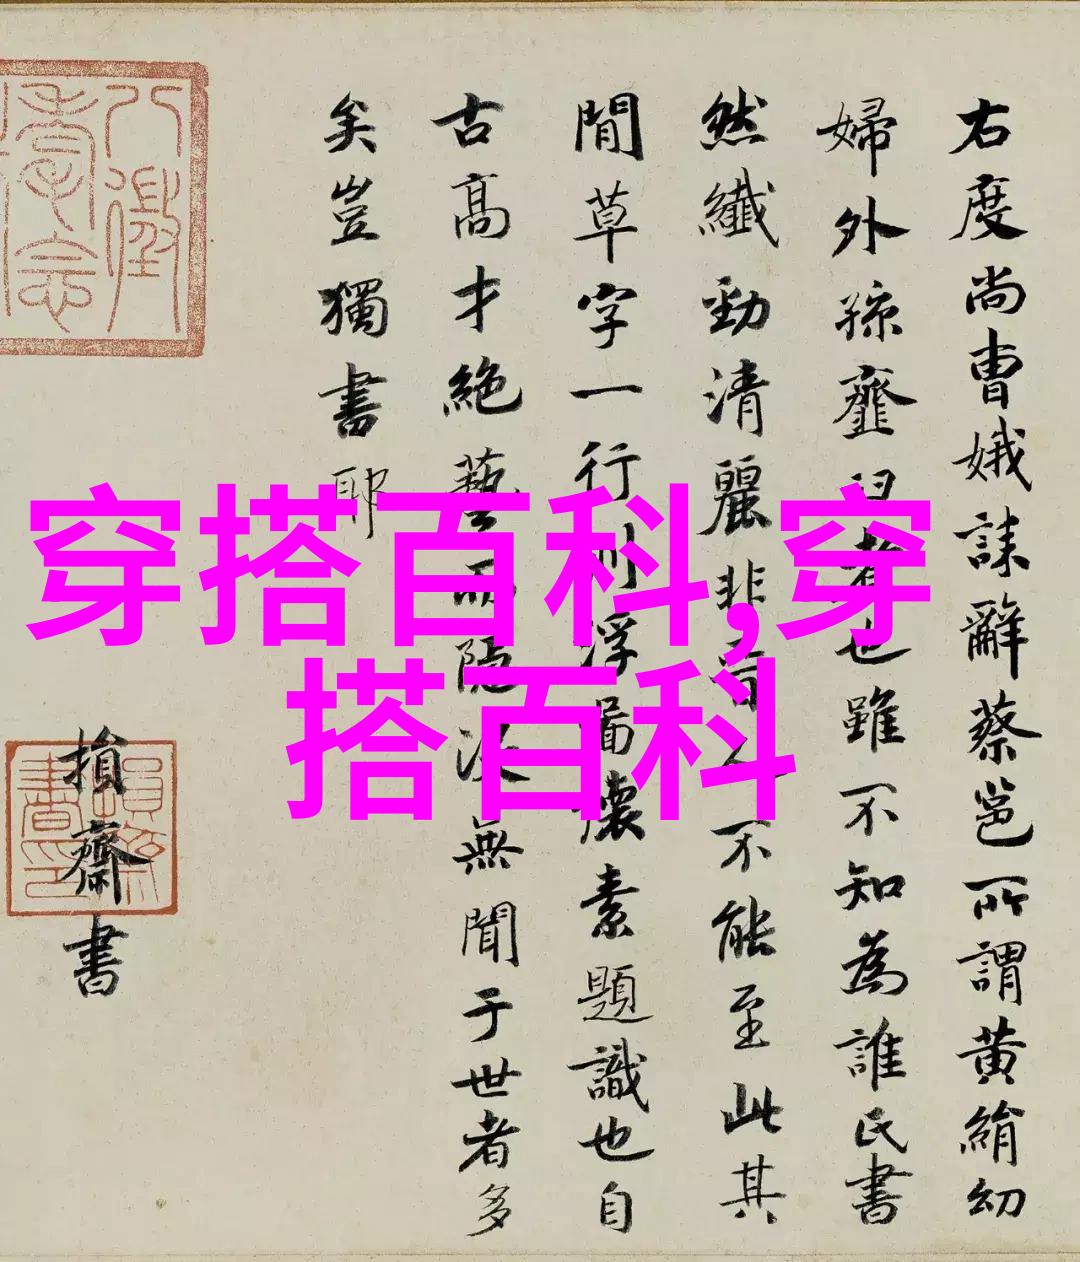 右度尚曹娥誄辭蔡邕所謂黄絹幼
婦外孫虀臼者也雖不知為誰氏書
然纖勁清麗非晉人不能至此其
閒草字一行則浮圖懷素題識也自
古高才絶藝而隱沒無聞于世者多
矣豈獨書耶
損齋書
穿搭百科,穿
搭百科